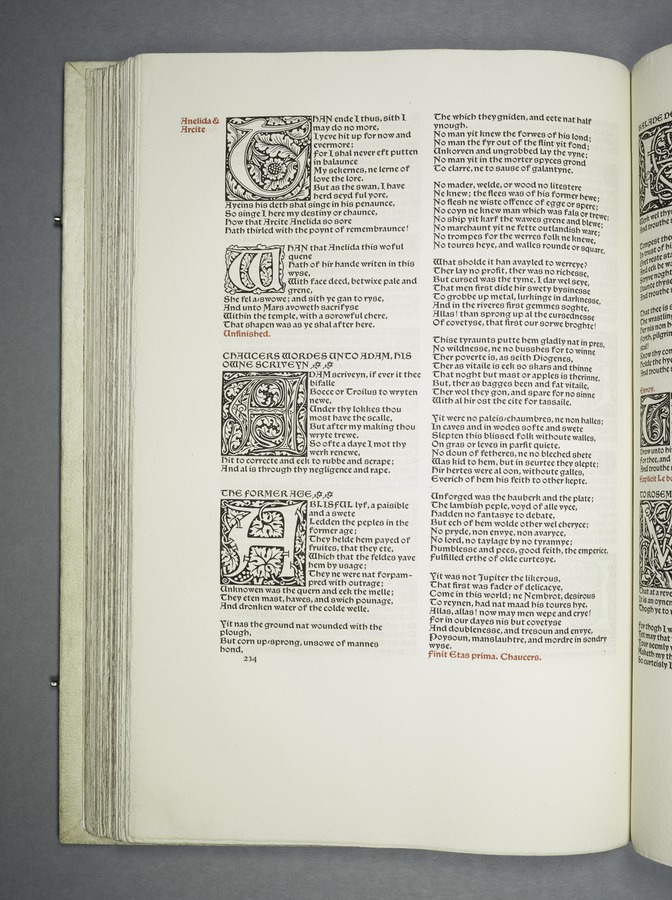 Anelida &
Arcite
THAN ende I thus, sith I
may do no more,
I yeve hit up for now and
evermore;
For I shal never eft putten
in balaunce
My sekernes, ne lerne of
love the lore.
But as the swan, I have
herd seyd ful yore,
Ayeins his deth shal singe in his penaunce,
So singe I here my destiny or chaunce,
How that Arcite Anelida so sore
Hath thirled with the poynt of remembraunce!
WHAN that Anelida this woful
quene
Hath of hir hande writen in this
wyse,
With face deed, betwixe pale and
grene,
She fel a/swowe; and sith ye gan to ryse,
And unto Mars avoweth sacrifyse
Within the temple, with a sorowful chere,
That shapen was as ye shal after here.
Unfinished.
CHAUCERS WORDES UNTO ADAM, HIS
OWNE SCRIVEYN
ADAM scriveyn, if ever it thee
bifalle
Boece or Troilus to wryten
newe,
Under thy lokkes thou
most have the scalle,
But after my making thou
wryte trewe.
So ofte a daye I mot thy
werk renewe,
Hit to correcte and eek to rubbe and scrape;
And al is through thy negligence and rape.
THE FORMER AGE
A BLISFUL lyf, a paisible
and a swete
Ledden the peples in the
former age;
They helde hem payed of
fruites, that they ete,
Which that the feldes yave
hem by usage;
They ne were nat forpam-
pred with outrage;
Unknowen was the quern and eek the melle;
They eten mast, hawes, and swich pounage,
And dronken water of the colde welle.
Yit nas the ground nat wounded with the
plough,
But corn up/sprong, unsowe of mannes
hond,
234
The which they gniden, and eete nat half
ynough.
No man yit knew the forwes of his lond;
No man the fyr out of the flint yit fond;
Unkorven and ungrobbed lay the vyne;
No man yit in the morter spyces grond
To clarre, ne to sause of galantyne.
No mader, welde, or wood no litestere
Ne knew; the flees was of his former hewe;
No flesh ne wiste offence of egge or spere;
No coyn ne knew man which was fals or trewe;
No ship yit karf the wawes grene and blewe;
No marchaunt yit ne fette outlandish ware;
No trompes for the werres folk ne knewe,
No toures heye, and walles rounde or square.
What sholde it han avayled to werreye?
Ther lay no profit, ther was no richesse,
But cursed was the tyme, I dar wel seye,
That men first dide hir swety bysinesse
To grobbe up metal, lurkinge in darknesse,
And in the riveres first gemmes soghte.
Allas! than sprong up al the cursednesse
Of covetyse, that first our sorwe broghte!
Thise tyraunts putte hem gladly nat in pres,
No wildnesse, ne no busshes for to winne
Ther poverte is, as seith Diogenes,
Ther as vitaile is eek so skars and thinne
That noght but mast or apples is therinne.
But, ther as bagges been and fat vitaile,
Ther wol they gon, and spare for no sinne
With al hir ost the cite for tassaile.
Yit were no paleis/chaumbres, ne non halles;
In caves and in wodes softe and swete
Slepten this blissed folk withoute walles,
On gras or leves in parfit quiete.
No doun of fetheres, ne no bleched shete
Was kid to hem, but in seurtee they slepte;
Hir hertes were al oon, withoute galles,
Everich of hem his feith to other kepte.
Unforged was the hauberk and the plate;
The lambish peple, voyd of alle vyce,
Hadden no fantasye to debate,
But ech of hem wolde other wel cheryce;
No pryde, non envye, non avaryce,
No lord, no taylage by no tyrannye;
Humblesse and pees, good feith, the emperice,
Fulfilled erthe of olde curteseye.
Yit was not Jupiter the likerous,
That first was fader of delicacye,
Come in this world; ne Nembrot, desirous
To reynen, had nat maad his toures hye.
Allas, allas! now may men wepe and crye!
For in our dayes nis but covetyse
And doublenesse, and tresoun and envye,
Poysoun, manslauhtre, and mordre in sondry
wyse.
Finit Etas prima. Chaucers.